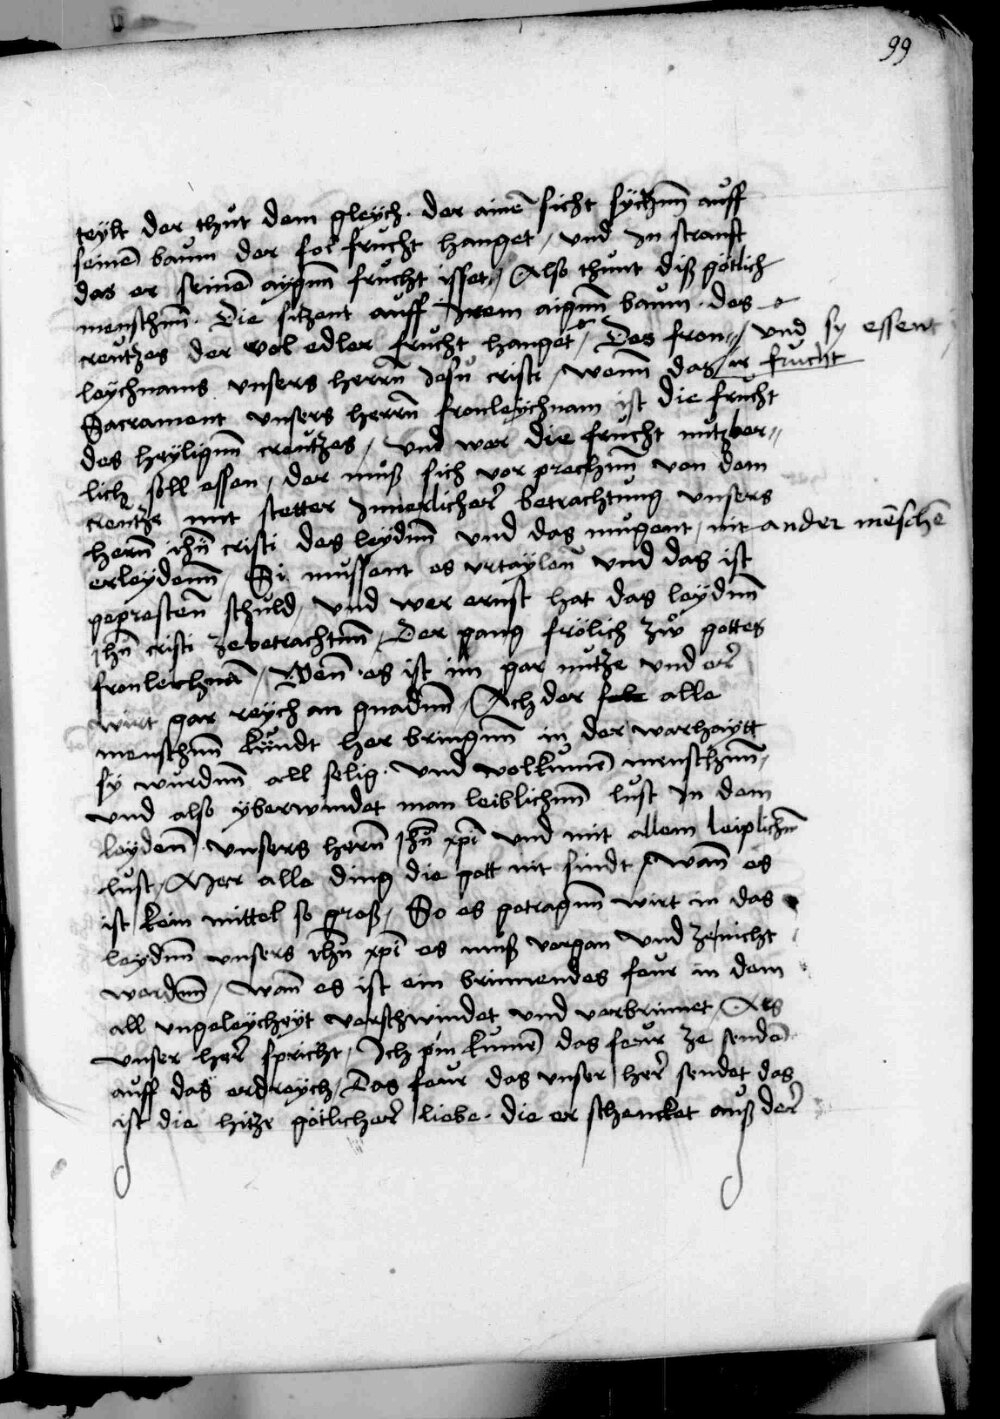 99
teylt der thut dem gleych. der ainē sicht sÿczenn auff
seinē baum der fol frucht hanget / und In strauft
das er seinē aygnn frucht isset / Also thunt diß götlich
menschenn. Die siczent auff Irem aignn baum. des
creutzes der vol edler frucht hanget / Des fron⸗ / und sy essent
leychnams unsers herrn Jesu cristi / wenn das ir frucht
Sacrament unsers herrn fronleychnam ist die frucht
des heyligenn creutzes / und wer die frucht nutzber⸗
lich soll essen / der muß sich vor prechenn von dem
creutze mit stetter Innerlicher betrachtung unsers
hernn ihū cristi des leydenn und das mugent / nit ander mēschē
erleydenn / Si mussent es urtaylen und das ist
gepresten schuld / und wer ernst hat das leydenn
ihū cristi ze betrachtenn / Der gang frölich zu gottes
fronleichnā / Wenn es ist im gar nutze und er
wirt gar reych an gnadenn / Ach der alle
menschenn kundt her bringenn in der warhaytt
sy wurdenn all selig. und volkumē menschenn /
und also yberwindet man leiblichenn lust In dem
leydenn unsers hernn ihū xpi und mit allem leiplichen
lust / Mer alle ding die gott nit sindt / wann es
ist kein mittel so groß / So es getragenn wirt in das
leydenn unsers ihū xpi es muß vergan und ze nicht
werdenn / wann es ist ein brinnendes feur in dem
all ungeleycheyt verschwindet und verbrinnet / Als
unser her spricht / Ich pin kumē das feur ze sendē
auff das erdreych / Das feur das unser her sendet das
ist die hitze götlicher liebe. die er schencket auß der